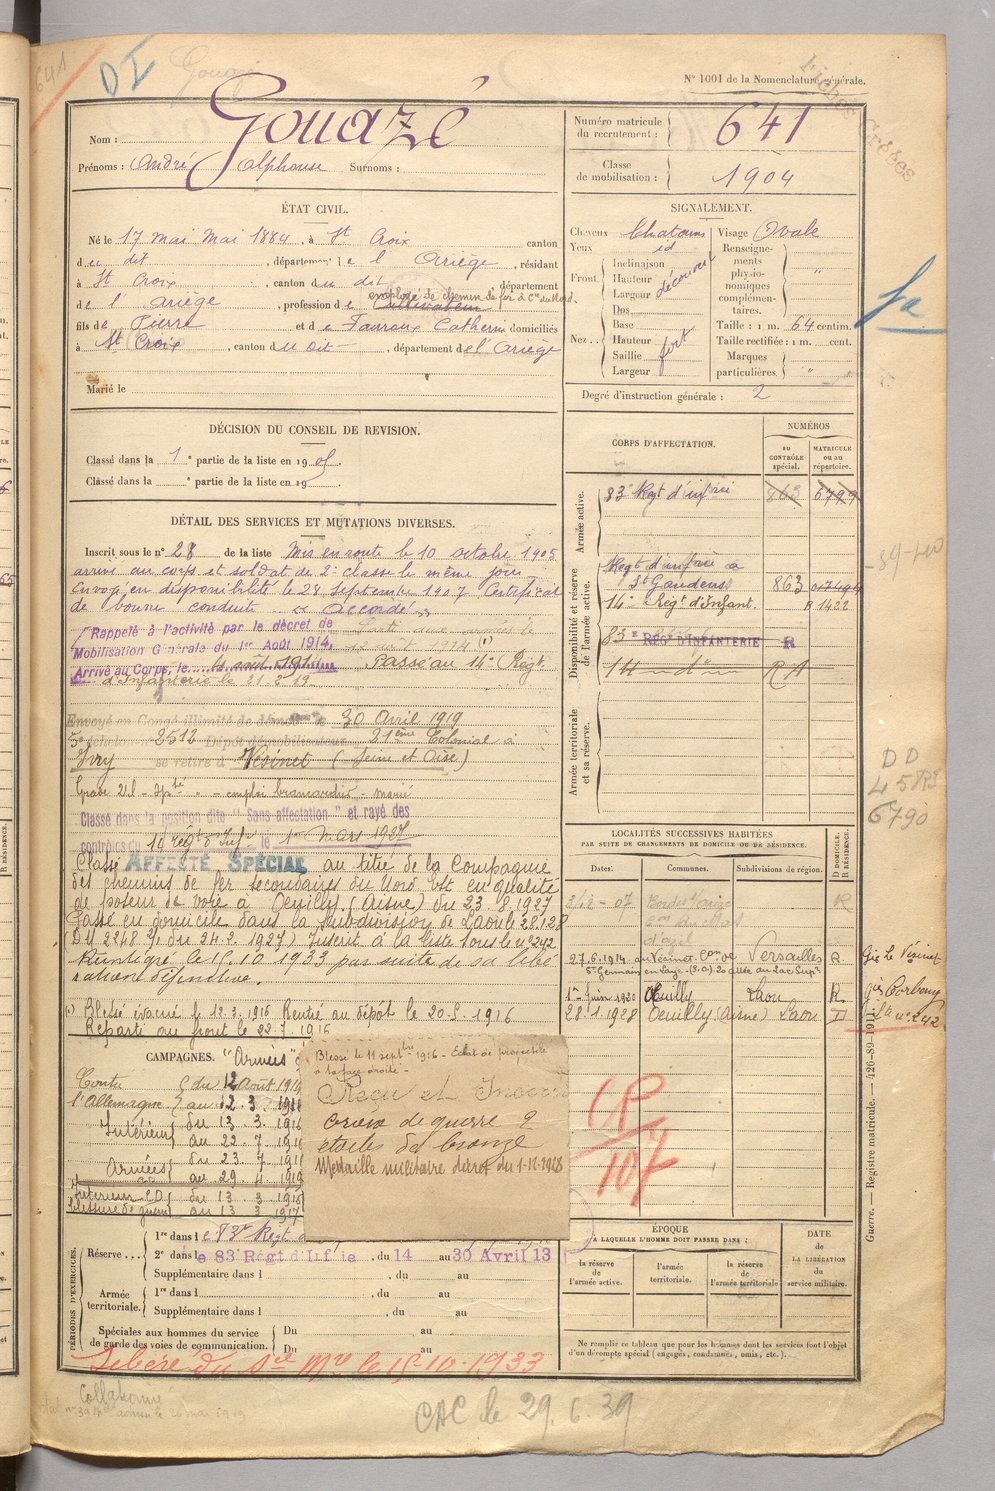 641
DI
Gouazé
N° 1001 de la Nomenclature générale.
Fiches Créées
Nom : Gouazé
Prénoms : André Alphonse Surnoms :
Numéro matricule du recrutement : 641
Classe de mobilisation : 1904
ÉTAT CIVIL.
Né le 17 mai Mai 1884, à St Croix canton
du dit, département de l'Ariège, résidant
à St Croix, canton du dit département
employé de chemin de fer à Cie du Nord
de l'Ariège, profession de Cultivateur
fils de Pierre et de Tauroux Catherine domiciliés
à St Croix, canton du dit, département de l'Ariège
Marié le
SIGNALEMENT.
Cheveux Chatains
Yeux id
Front.
Inclinaison
Hauteur
Largeur
découvert
Nez...
Dos
Base
Hauteur
Saillie
Largeur
fort
Visage Ovale
Renseignements physionomiques complémentaires. "
Taille : 1 m. 64 centim.
Taille rectifiée : 1 m. cent.
Marques particulières. "
Degré d'instruction générale : 2
DÉCISION DU CONSEIL DE REVISION.
Classé dans la 1e partie de la liste en 1905.
Classé dans la e partie de la liste en 19 .
DÉTAIL DES SERVICES ET MUTATIONS DIVERSES.
Inscrit sous le n° 28 de la liste Mis en route le 10 octobre 1905
arrivé au corps et soldat de 2e classe le même jour
Envoyé en disponibilité le 28 Septembre 1907 Certificat
de bonne conduite "Accordé"
Rappelé à l'activité par le décret de
Mobilisation Générale du 1er Août 1914.
Parti aux armées le
12 août 1914 (1)
Arrivé au Corps, le 4 août 1914 Passé au 14e Régt
d'Infanterie le 21.2.19
Envoyé en Congé illimité de démob le 30 Avril 1919
5e échelon 2512 Dépôt démobilisateur 21ème Colonial à
Ivry se retire à Vésinet (Seine et Oise)
emploi brancardier - marié
Classé dans la position dite "Sans affectation" et rayé des
contrôles du 10 régt d'Inf le 1er Mars 1927
Classé AFFECTÉ SPÉCIAL au titre de la Compagnie
des chemins de fer secondaires du Nord Est en qualité
de poseur de voie à Oeuilly (Aisne) du 23.8.1927
Passé en domicile dans la subdivision de Laon le 28.1.28
(DM 2248 du 24.2.1927) Inscrit à la liste sous le n° 242
Réintégré le 15.10.1933 par suite de sa libé
ration définitive.
(1) Blessé évacué le 12.3.1916 Rentré au dépôt le 20.5.1916
Réparti au front le 22.7.1916
CAMPAGNES. "Armées"
Contre l'Allemagne du 12 Août 1914
au 12.3.191
Intérieur du 13.3.1916
au 22.7.191
Armées du 23.7.191
au 29.4.1919
Intérieur CD du 13 3 1916
Blessure de guerre au 13 3 1917
Blessé le 11 septbre 1916 - Eclat de projectile
à la face droite -
Reçu et Inscrit
croix de guerre 2
étoiles de bronze
Médaille militaire décret du 1-12-1928
CORPS D'AFFECTATION.
NUMÉROS
au CONTRÔLE spécial.
MATRICULE ou au répertoire.
Armée active.
83e Régt d'infrie 863 6799
Disponibilité et réserve de l'armée active.
Regt d'infrie à
St Gaudens 863
14e Régt d'Infant. R 1422
83e REGt D'INFANTERIE R
14 d° RA
Armée territoriale et sa réserve.
LOCALITÉS SUCCESSIVES HABITÉES
PAR SUITE DE CHANGEMENTS DE DOMICILE OU DE RÉSIDENCE.
Dates. Communes. Subdivisions de région. D DOMICILE. R RÉSIDENCE.
3/12-07 R
con du Mas
d'azil
27.6.1914 au Vésinet Con de Versailles R Gie Le Vésinet
St Germain en Laye (S.O) 20 allée du Lac Supr
1er Juin 1920 Oeuilly Laon R gie Corbeny
28.1.1928 Oeuilly (Aisne) Laon D Su n° 242
DD
6790
CP
107
Guerre. — Registre matricule. — 426-89-1911.
PÉRIODES D'EXERCICES.
Réserve...
1re dans le 83e Régt d
2e dans le 83e Régt d'Infie, du 14 au 30 Avril 13
Supplémentaire dans l , du au
Armée territoriale.
1re dans l , du au
Supplémentaire dans l , du au
Spéciales aux hommes du service de garde des voies de communication.
Du au
Du au
Libéré du Sce Mre le 15-10-1933
ÉPOQUE
A LAQUELLE L'HOMME DOIT PASSER DANS :
la réserve de l'armée active.
l'armée territoriale.
la réserve de l'armée territoriale
DATE DE LA LIBÉRATION du service militaire.
Ne remplir ce tableau que pour les hommes dont les services font l'objet
d'un décompte spécial (engagés, condamnés, omis, etc.).
CAC le 29.6.39